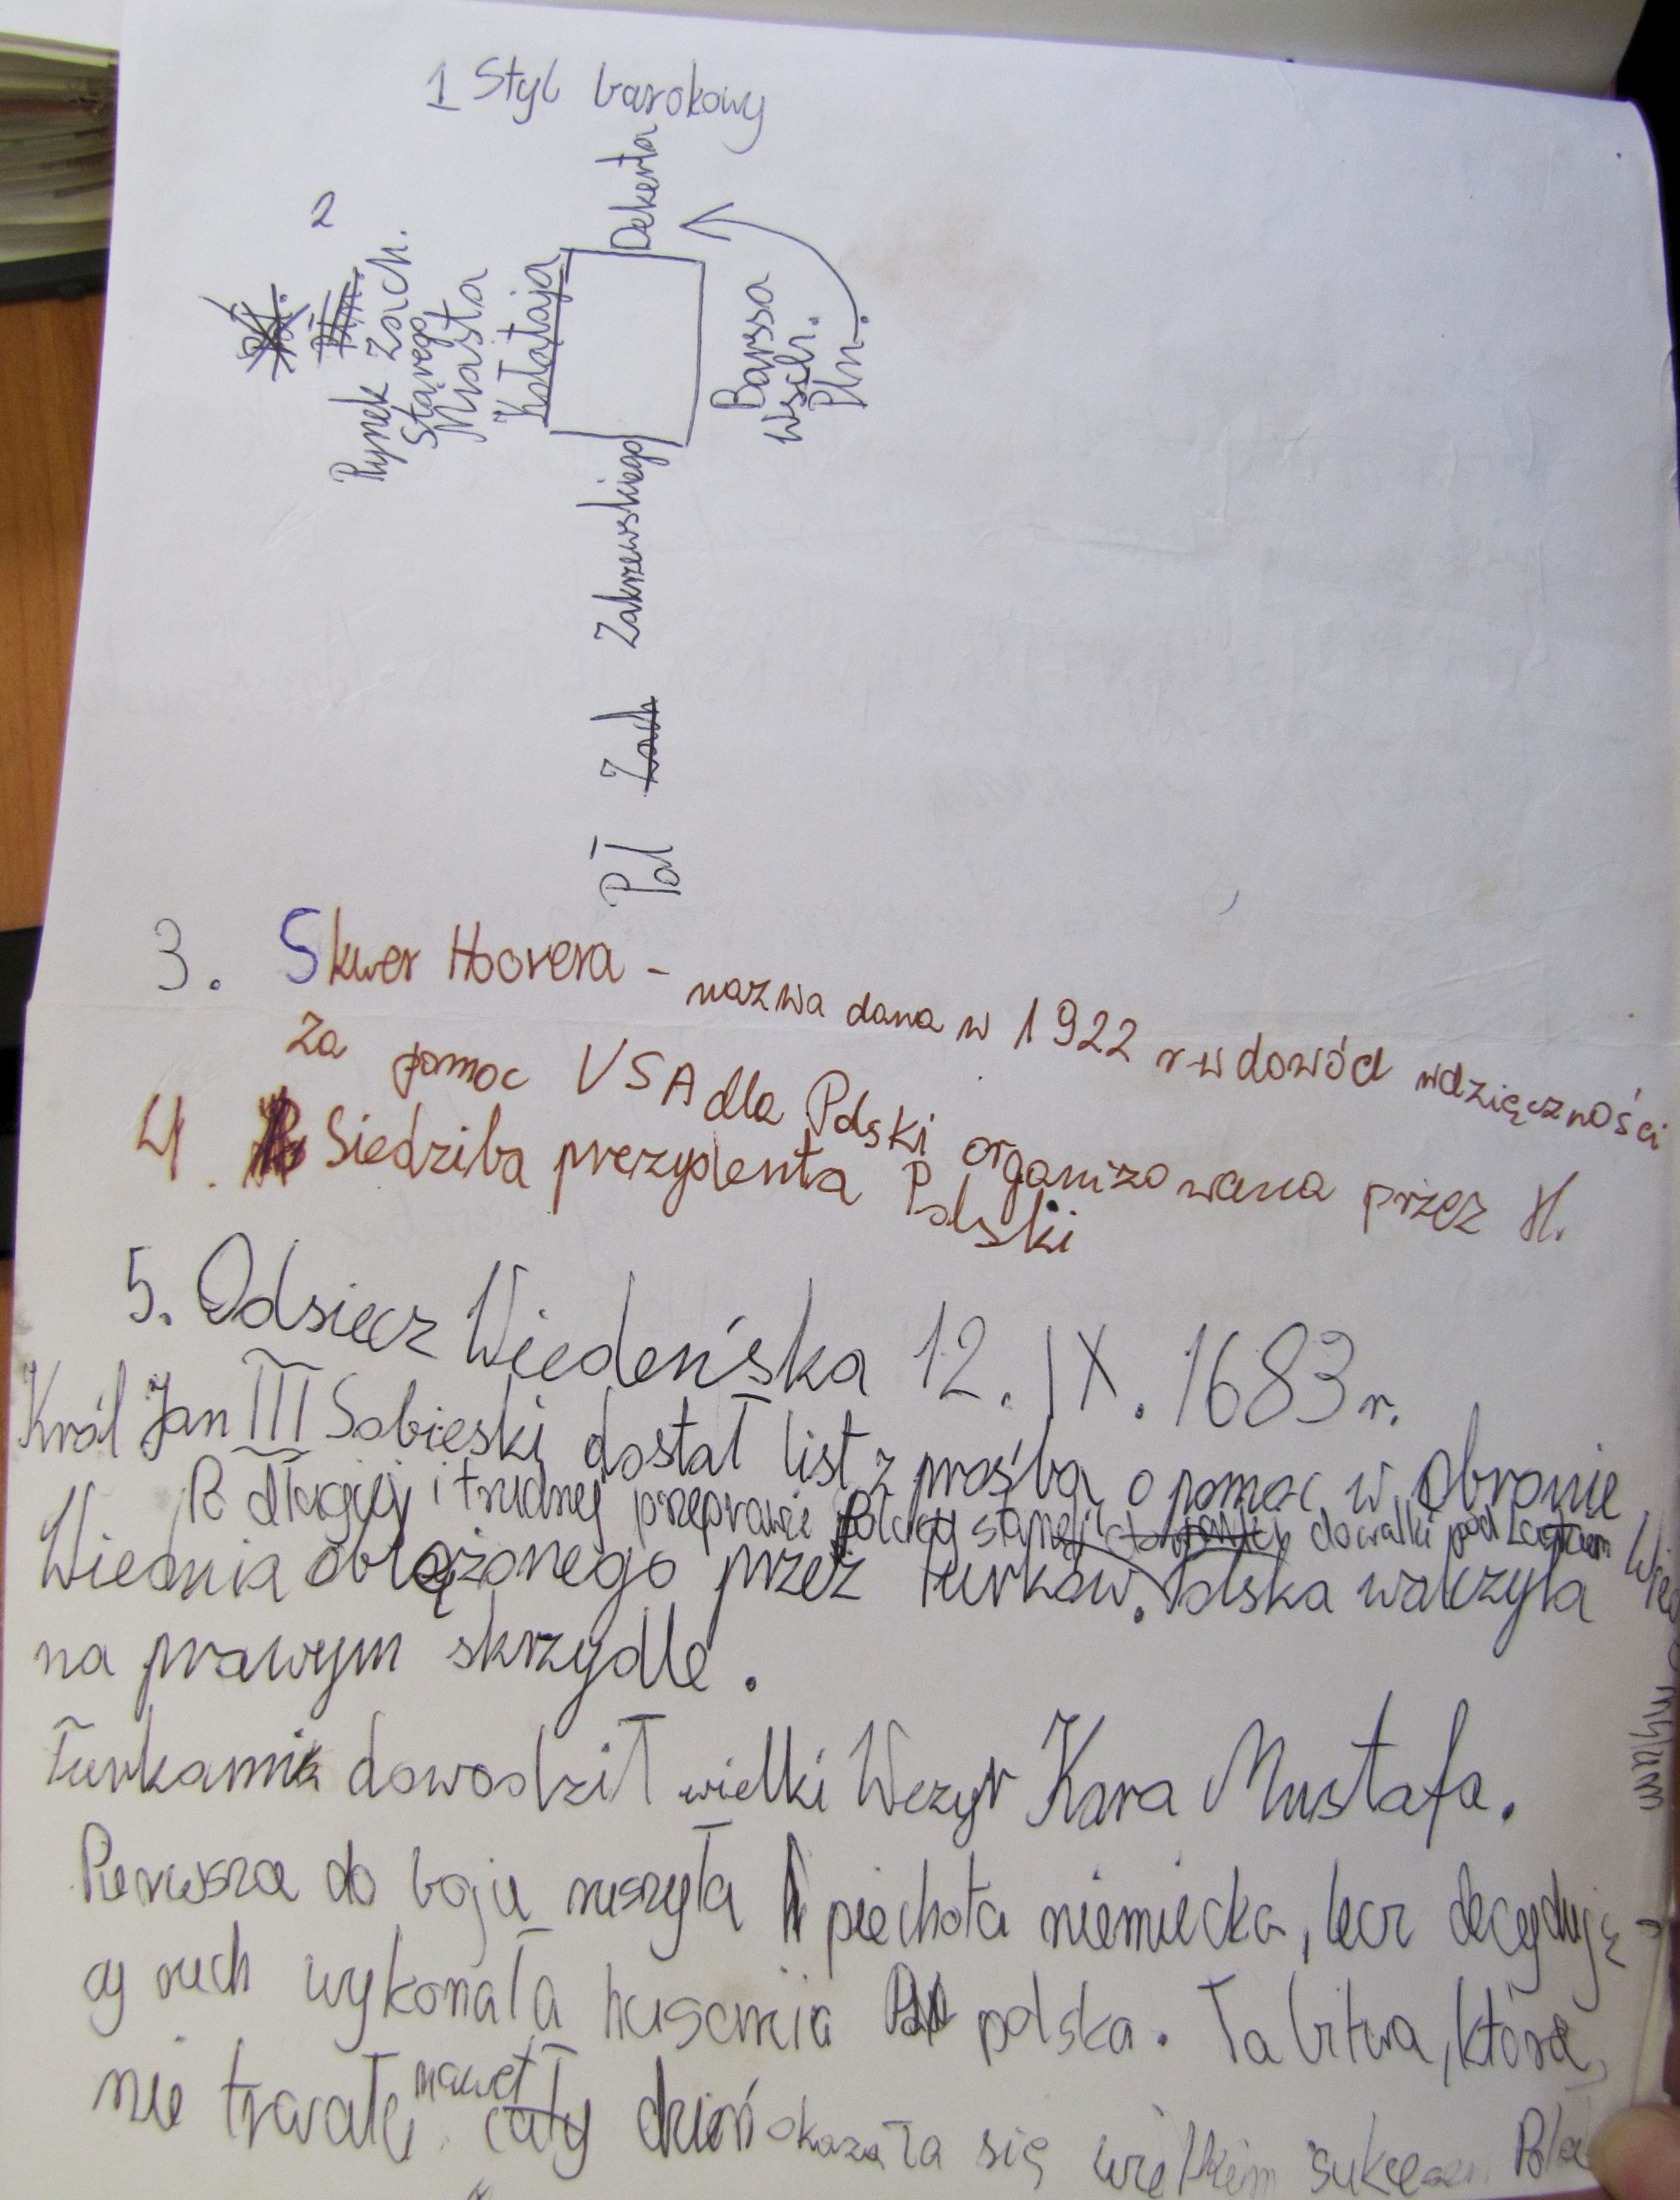 1 Styl barokowy
2
Rynek Zach.
Starego
Miasta
Kołątaja
Dekerta
Barssa
Wsch.
Płn.
Zakrzewskiego
Poł Zach
3. Skwer Hoovera - nazwa dana w 1922 r w dowód wdzięczności
za pomoc USA dla Polski organizowana przez H.
4. Siedziba prezydenta Polski
5. Odsiecz Wiedeńska 12. IX. 1683 r.
Król Jan III Sobieski dostał list z prośbą o pomoc w obronie
Po długiej i trudnej przeprawie Polacy stanęli do walki pod
Wiednia oblążonego przez turków. Polska walczyła
na prawym skrzydle.
Turkami dowodził wielki Wezyr Kara Mustafa.
Pierwsza do boju ruszyła piechota niemiecka, lecz decydują
cy ruch wykonała husaria polska. Ta bitwa, która
nie trwała nawet cały dzień okazała się wielkim